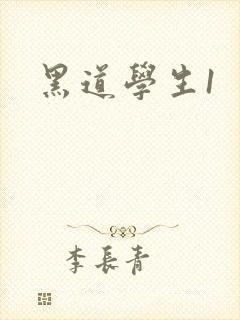 黑道學生1
李長青